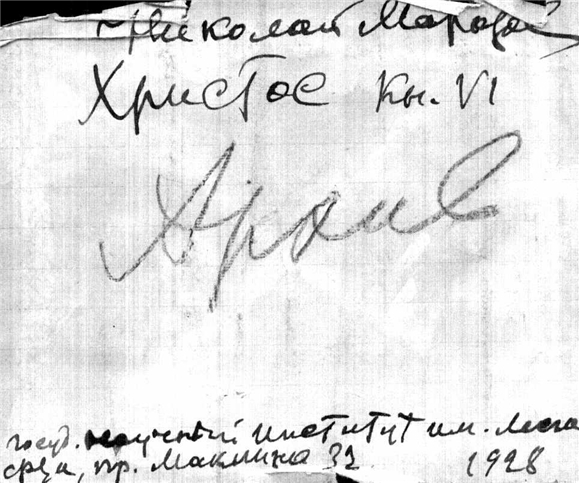 Николай Морозов
Христос Кн. VI
Архив
госуд. научный институт им. Лесга
фта, пр. Маклина 32 1928